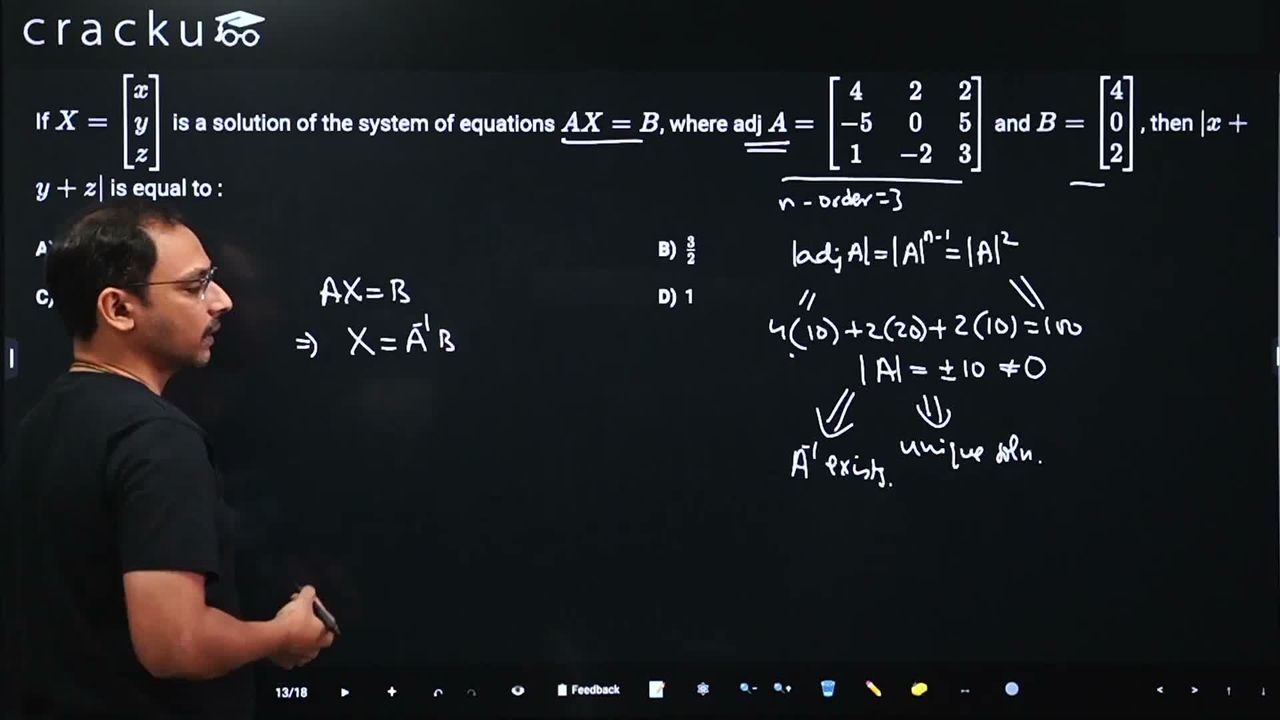 cracku
If X = [x y z] is a solution of the system of equations AX = B, where adj A = [4 2 2 −5 0 5 1 −2 3] and B = [4 0 2], then |x +
y + z| is equal to :
n - order = 3
A
B) 3/2
|adj A| = |A|ⁿ⁻¹ = |A|²
C,
D) 1
AX = B
4(10) + 2(20) + 2(10) = 100
⇒ X = A⁻¹B
|A| = ±10 ≠ 0
A⁻¹ exists.
unique soln.
13/18
Feedback